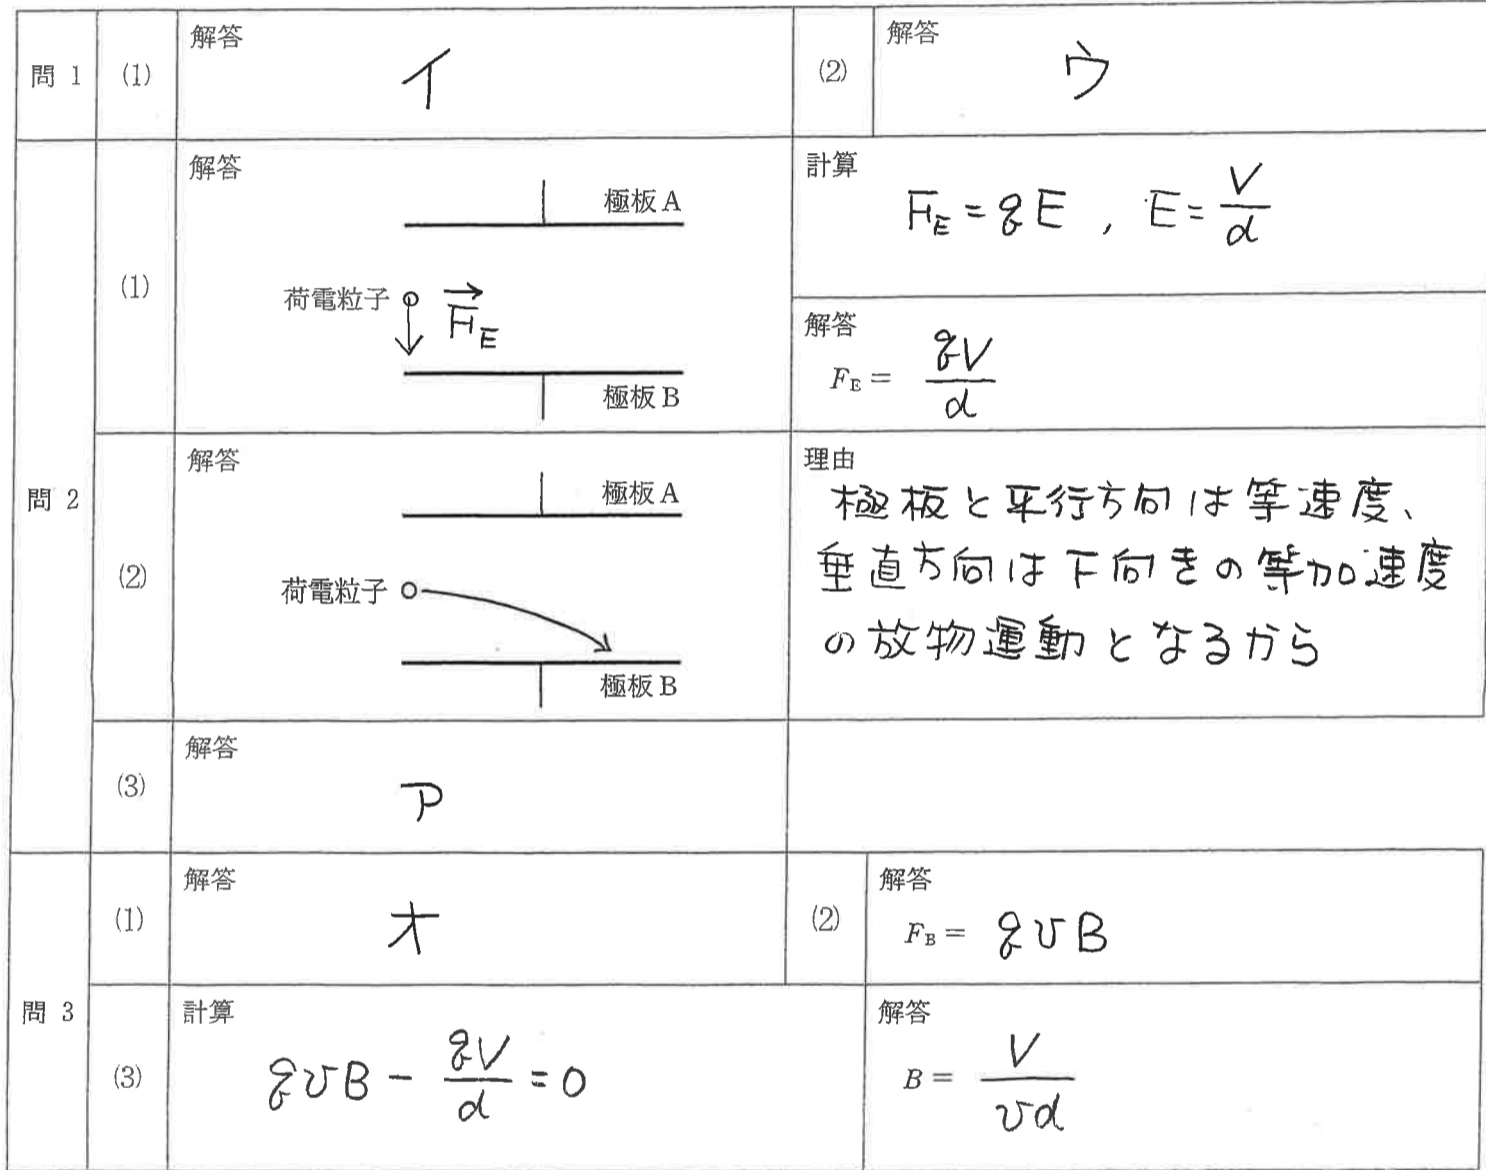 問 1
(1)
解答
イ
(2)
解答
ウ
問 2
(1)
解答
極板 A
荷電粒子
F_E
極板 B
計算
F_E = qE , E = V/d
解答
F_E = qV/d
(2)
解答
極板 A
荷電粒子
極板 B
理由
極板と平行方向は等速度、
垂直方向は下向きの等加速度
の放物運動となるから
(3)
解答
ア
問 3
(1)
解答
オ
(2)
解答
F_B = qvB
(3)
計算
qvB - qV/d = 0
解答
B = V/vd